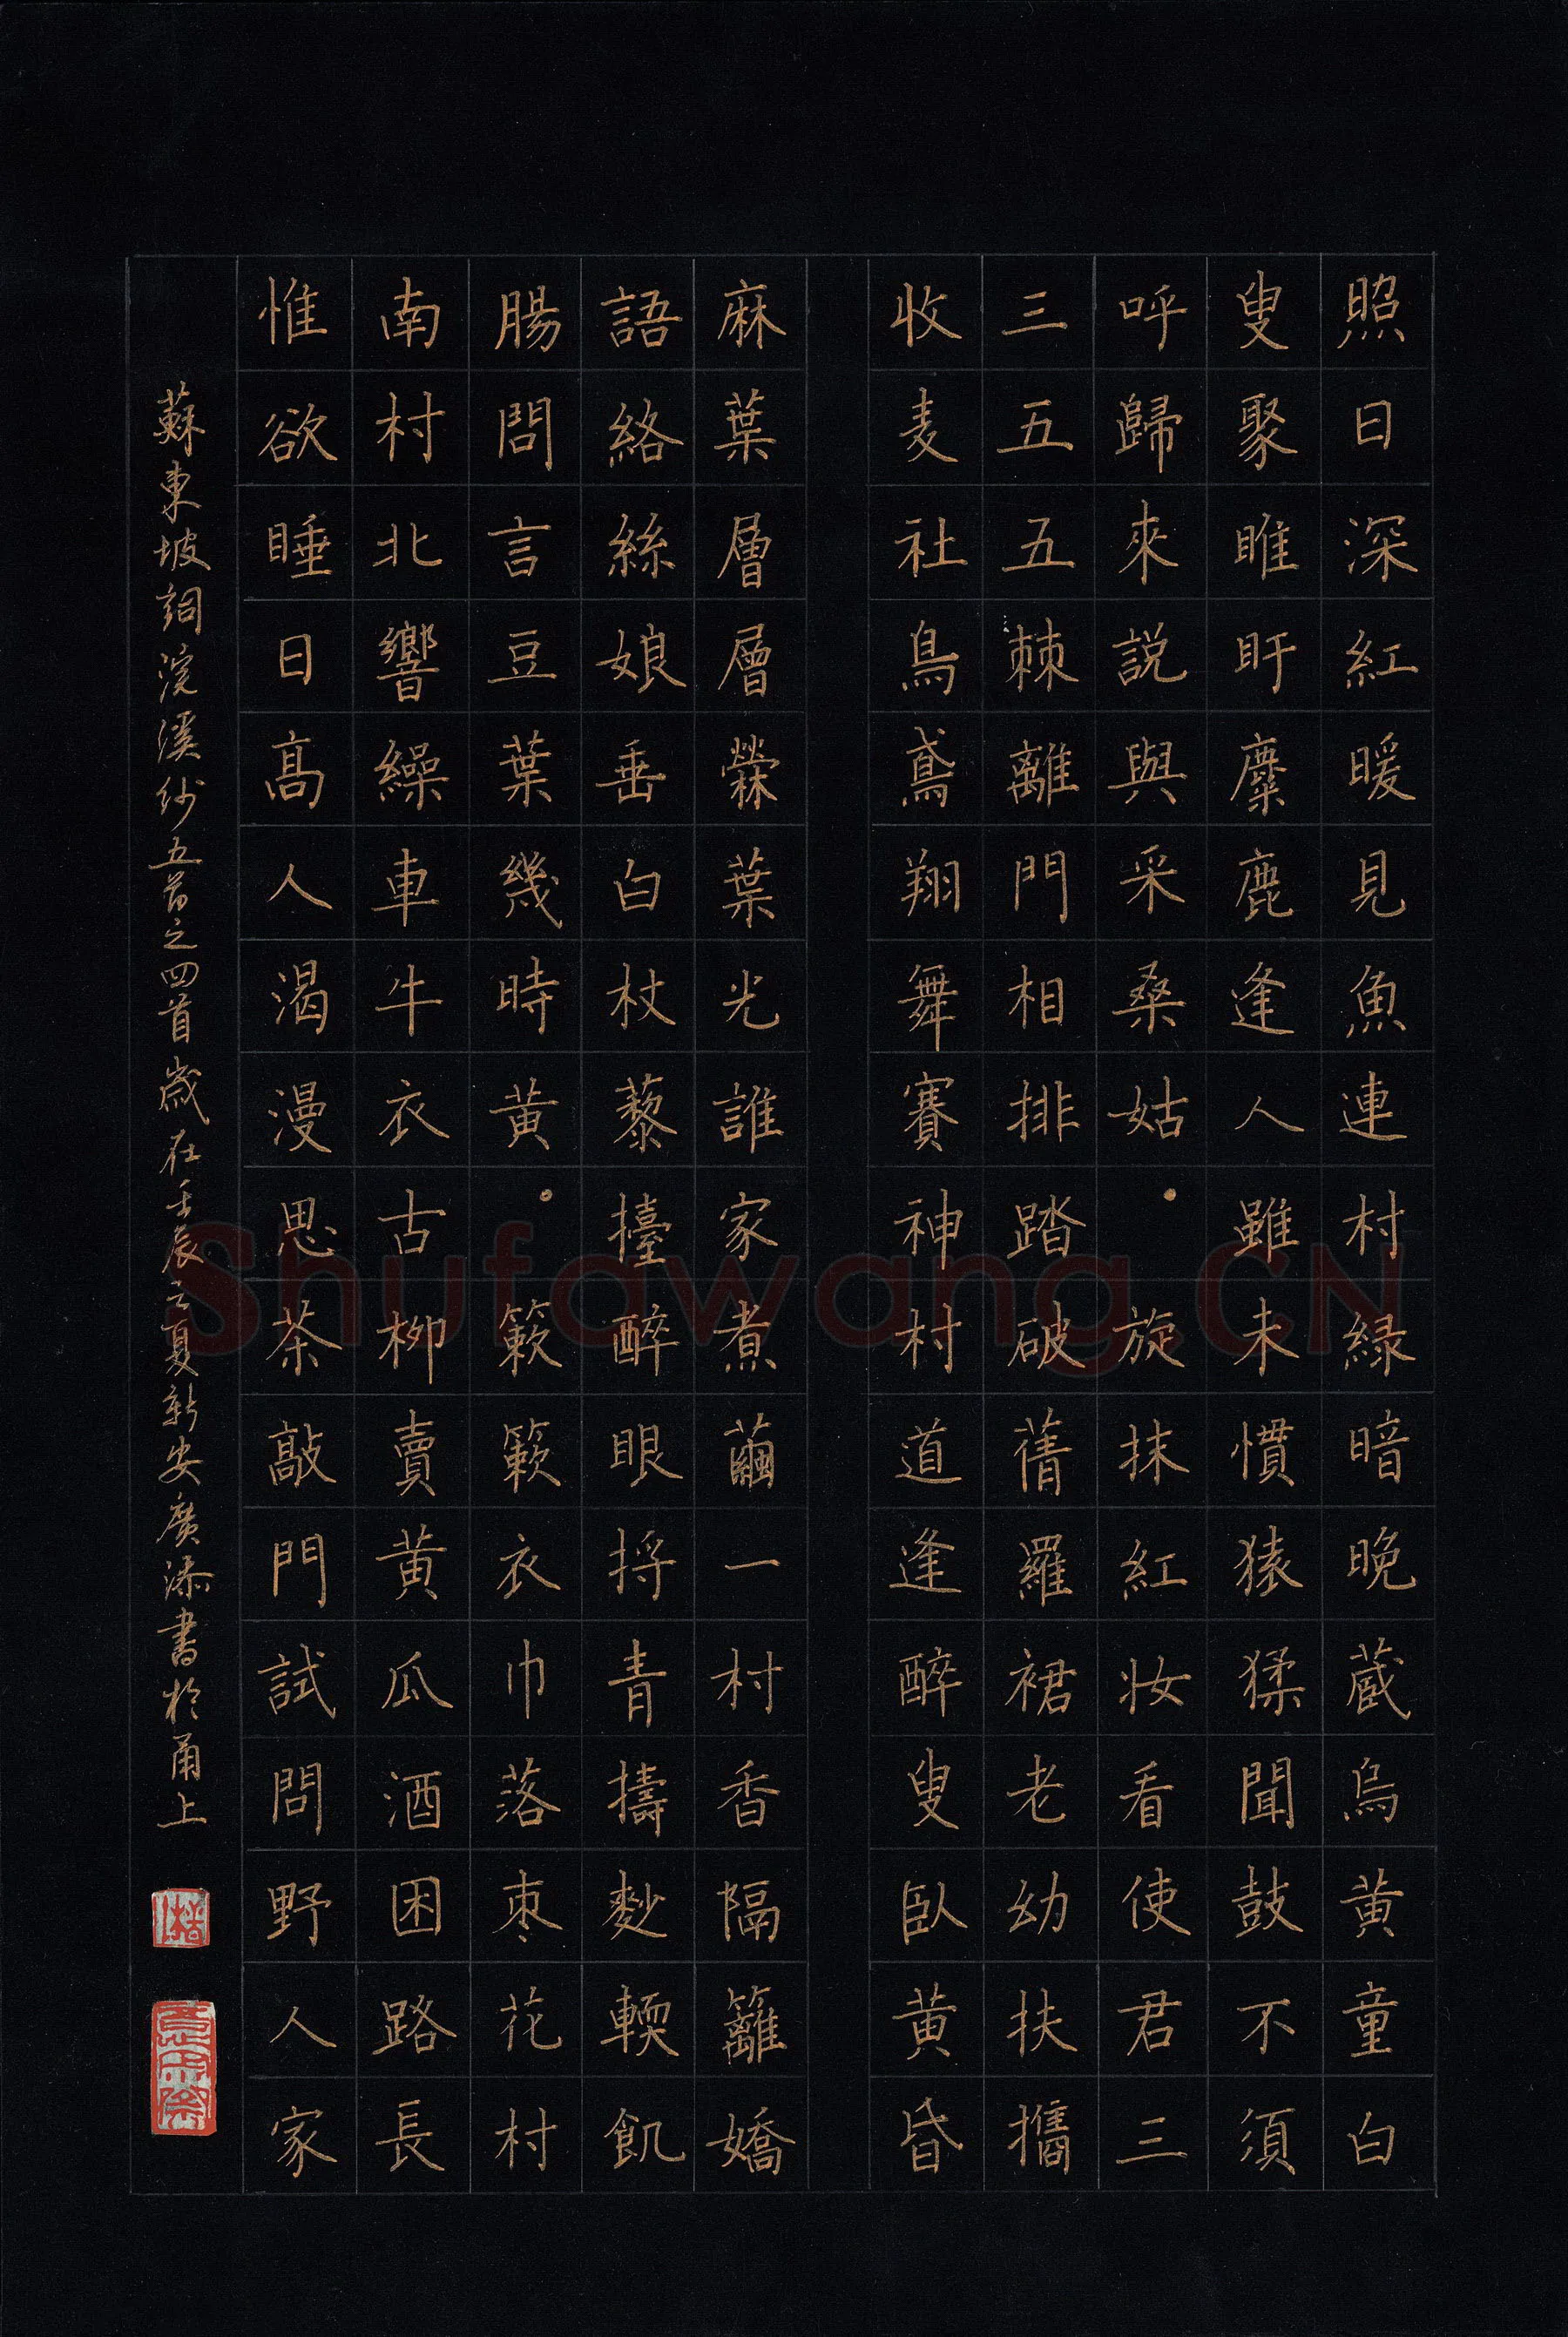 照日深紅暖見魚連村緑暗晚蔵烏黄童白
叟聚睢盱麋鹿逢人雖未慣猿猱聞鼓不須
呼歸來説與采桑姑。旋抹紅妝看使君三
三五五棘離門相排踏破蒨羅裙老幼扶攜
收麦社鳥鳶翔舞賽神村道逢醉叟臥黄昏
麻葉層層檾葉光誰家煮繭一村香隔籬嬌
語絡絲娘垂白杖藜擡醉眼捋青擣麨輭飢
腸問言豆葉幾時黄。簌簌衣巾落枣花村
南村北響繰車牛衣古柳賣黄瓜酒困路長
惟欲睡日高人渴漫思茶敲門試問野人家
蘇東坡詞浣溪紗五首之四首歲在壬辰之夏新安廣添書於甬上
Shufawang.CN